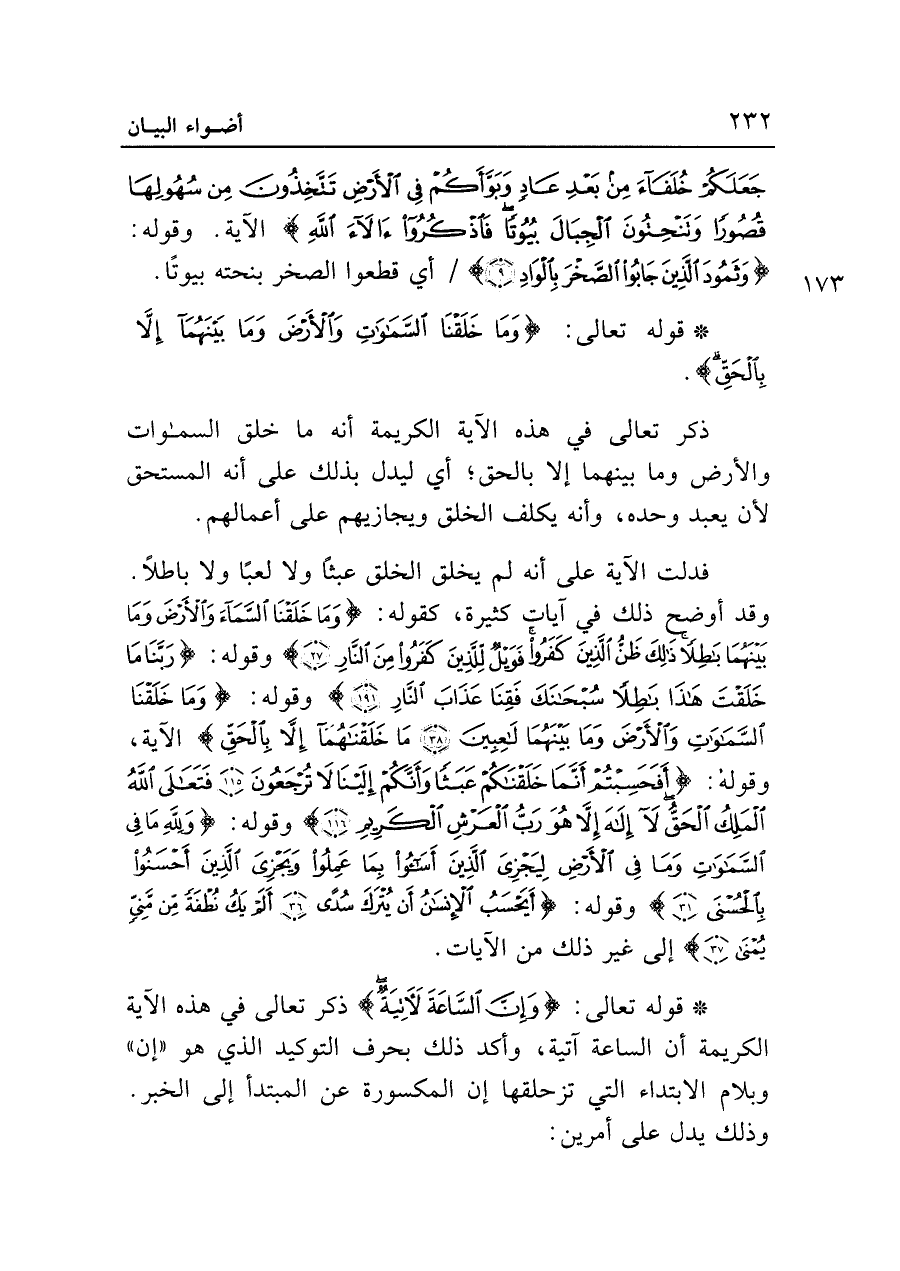 ٢٣٢ أضواء البيان
جَعَلَكُمْ خُلَفَآءَ مِنۢ بَعْدِ عَادٍ وَبَوَّأَكُمْ فِي ٱلْأَرْضِ تَتَّخِذُونَ مِن سُهُولِهَا
قُصُورًا وَتَنْحِتُونَ ٱلْجِبَالَ بُيُوتًا ۖ فَٱذْكُرُوٓا۟ ءَالَآءَ ٱللَّهِ﴾ الآية. وقوله:
﴿وَثَمُودَ ٱلَّذِينَ جَابُوا۟ ٱلصَّخْرَ بِٱلْوَادِ ٩﴾ / أي قطعوا الصخر بنحته بيوتًا. ١٧٣
* قوله تعالى: ﴿وَمَا خَلَقْنَا ٱلسَّمَٰوَٰتِ وَٱلْأَرْضَ وَمَا بَيْنَهُمَآ إِلَّا
بِٱلْحَقِّ ۗ﴾.
ذكر تعالى في هذه الآية الكريمة أنه ما خلق السمٰوات
والأرض وما بينهما إلا بالحق؛ أي ليدل بذلك على أنه المستحق
لأن يعبد وحده، وأنه يكلف الخلق ويجازيهم على أعمالهم.
فدلت الآية على أنه لم يخلق الخلق عبثًا ولا لعبًا ولا باطلاً.
وقد أوضح ذلك في آيات كثيرة، كقوله: ﴿وَمَا خَلَقْنَا ٱلسَّمَآءَ وَٱلْأَرْضَ وَمَا
بَيْنَهُمَا بَٰطِلًا ۚ ذَٰلِكَ ظَنُّ ٱلَّذِينَ كَفَرُوا۟ ۚ فَوَيْلٌ لِّلَّذِينَ كَفَرُوا۟ مِنَ ٱلنَّارِ ٢٧﴾ وقوله: ﴿رَبَّنَا مَا
خَلَقْتَ هَٰذَا بَٰطِلًا سُبْحَٰنَكَ فَقِنَا عَذَابَ ٱلنَّارِ ١٩١﴾ وقوله: ﴿وَمَا خَلَقْنَا
ٱلسَّمَٰوَٰتِ وَٱلْأَرْضَ وَمَا بَيْنَهُمَا لَٰعِبِينَ ٣٨ مَا خَلَقْنَٰهُمَآ إِلَّا بِٱلْحَقِّ﴾ الآية،
وقوله: ﴿أَفَحَسِبْتُمْ أَنَّمَا خَلَقْنَٰكُمْ عَبَثًا وَأَنَّكُمْ إِلَيْنَا لَا تُرْجَعُونَ ١١٥ فَتَعَٰلَى ٱللَّهُ
ٱلْمَلِكُ ٱلْحَقُّ ۖ لَآ إِلَٰهَ إِلَّا هُوَ رَبُّ ٱلْعَرْشِ ٱلْكَرِيمِ ١١٦﴾ وقوله: ﴿وَلِلَّهِ مَا فِي
ٱلسَّمَٰوَٰتِ وَمَا فِي ٱلْأَرْضِ لِيَجْزِيَ ٱلَّذِينَ أَسَٰٓـُٔوا۟ بِمَا عَمِلُوا۟ وَيَجْزِيَ ٱلَّذِينَ أَحْسَنُوا۟
بِٱلْحُسْنَى ٣١﴾ وقوله: ﴿أَيَحْسَبُ ٱلْإِنسَٰنُ أَن يُتْرَكَ سُدًى ٣٦ أَلَمْ يَكُ نُطْفَةً مِّن مَّنِيٍّ
يُمْنَىٰ ٣٧﴾ إلى غير ذلك من الآيات.
* قوله تعالى: ﴿وَإِنَّ ٱلسَّاعَةَ لَءَاتِيَةٌ ۖ﴾ ذكر تعالى في هذه الآية
الكريمة أن الساعة آتية، وأكد ذلك بحرف التوكيد الذي هو «إن»
وبلام الابتداء التي تزحلقها إن المكسورة عن المبتدأ إلى الخبر.
وذلك يدل على أمرين: